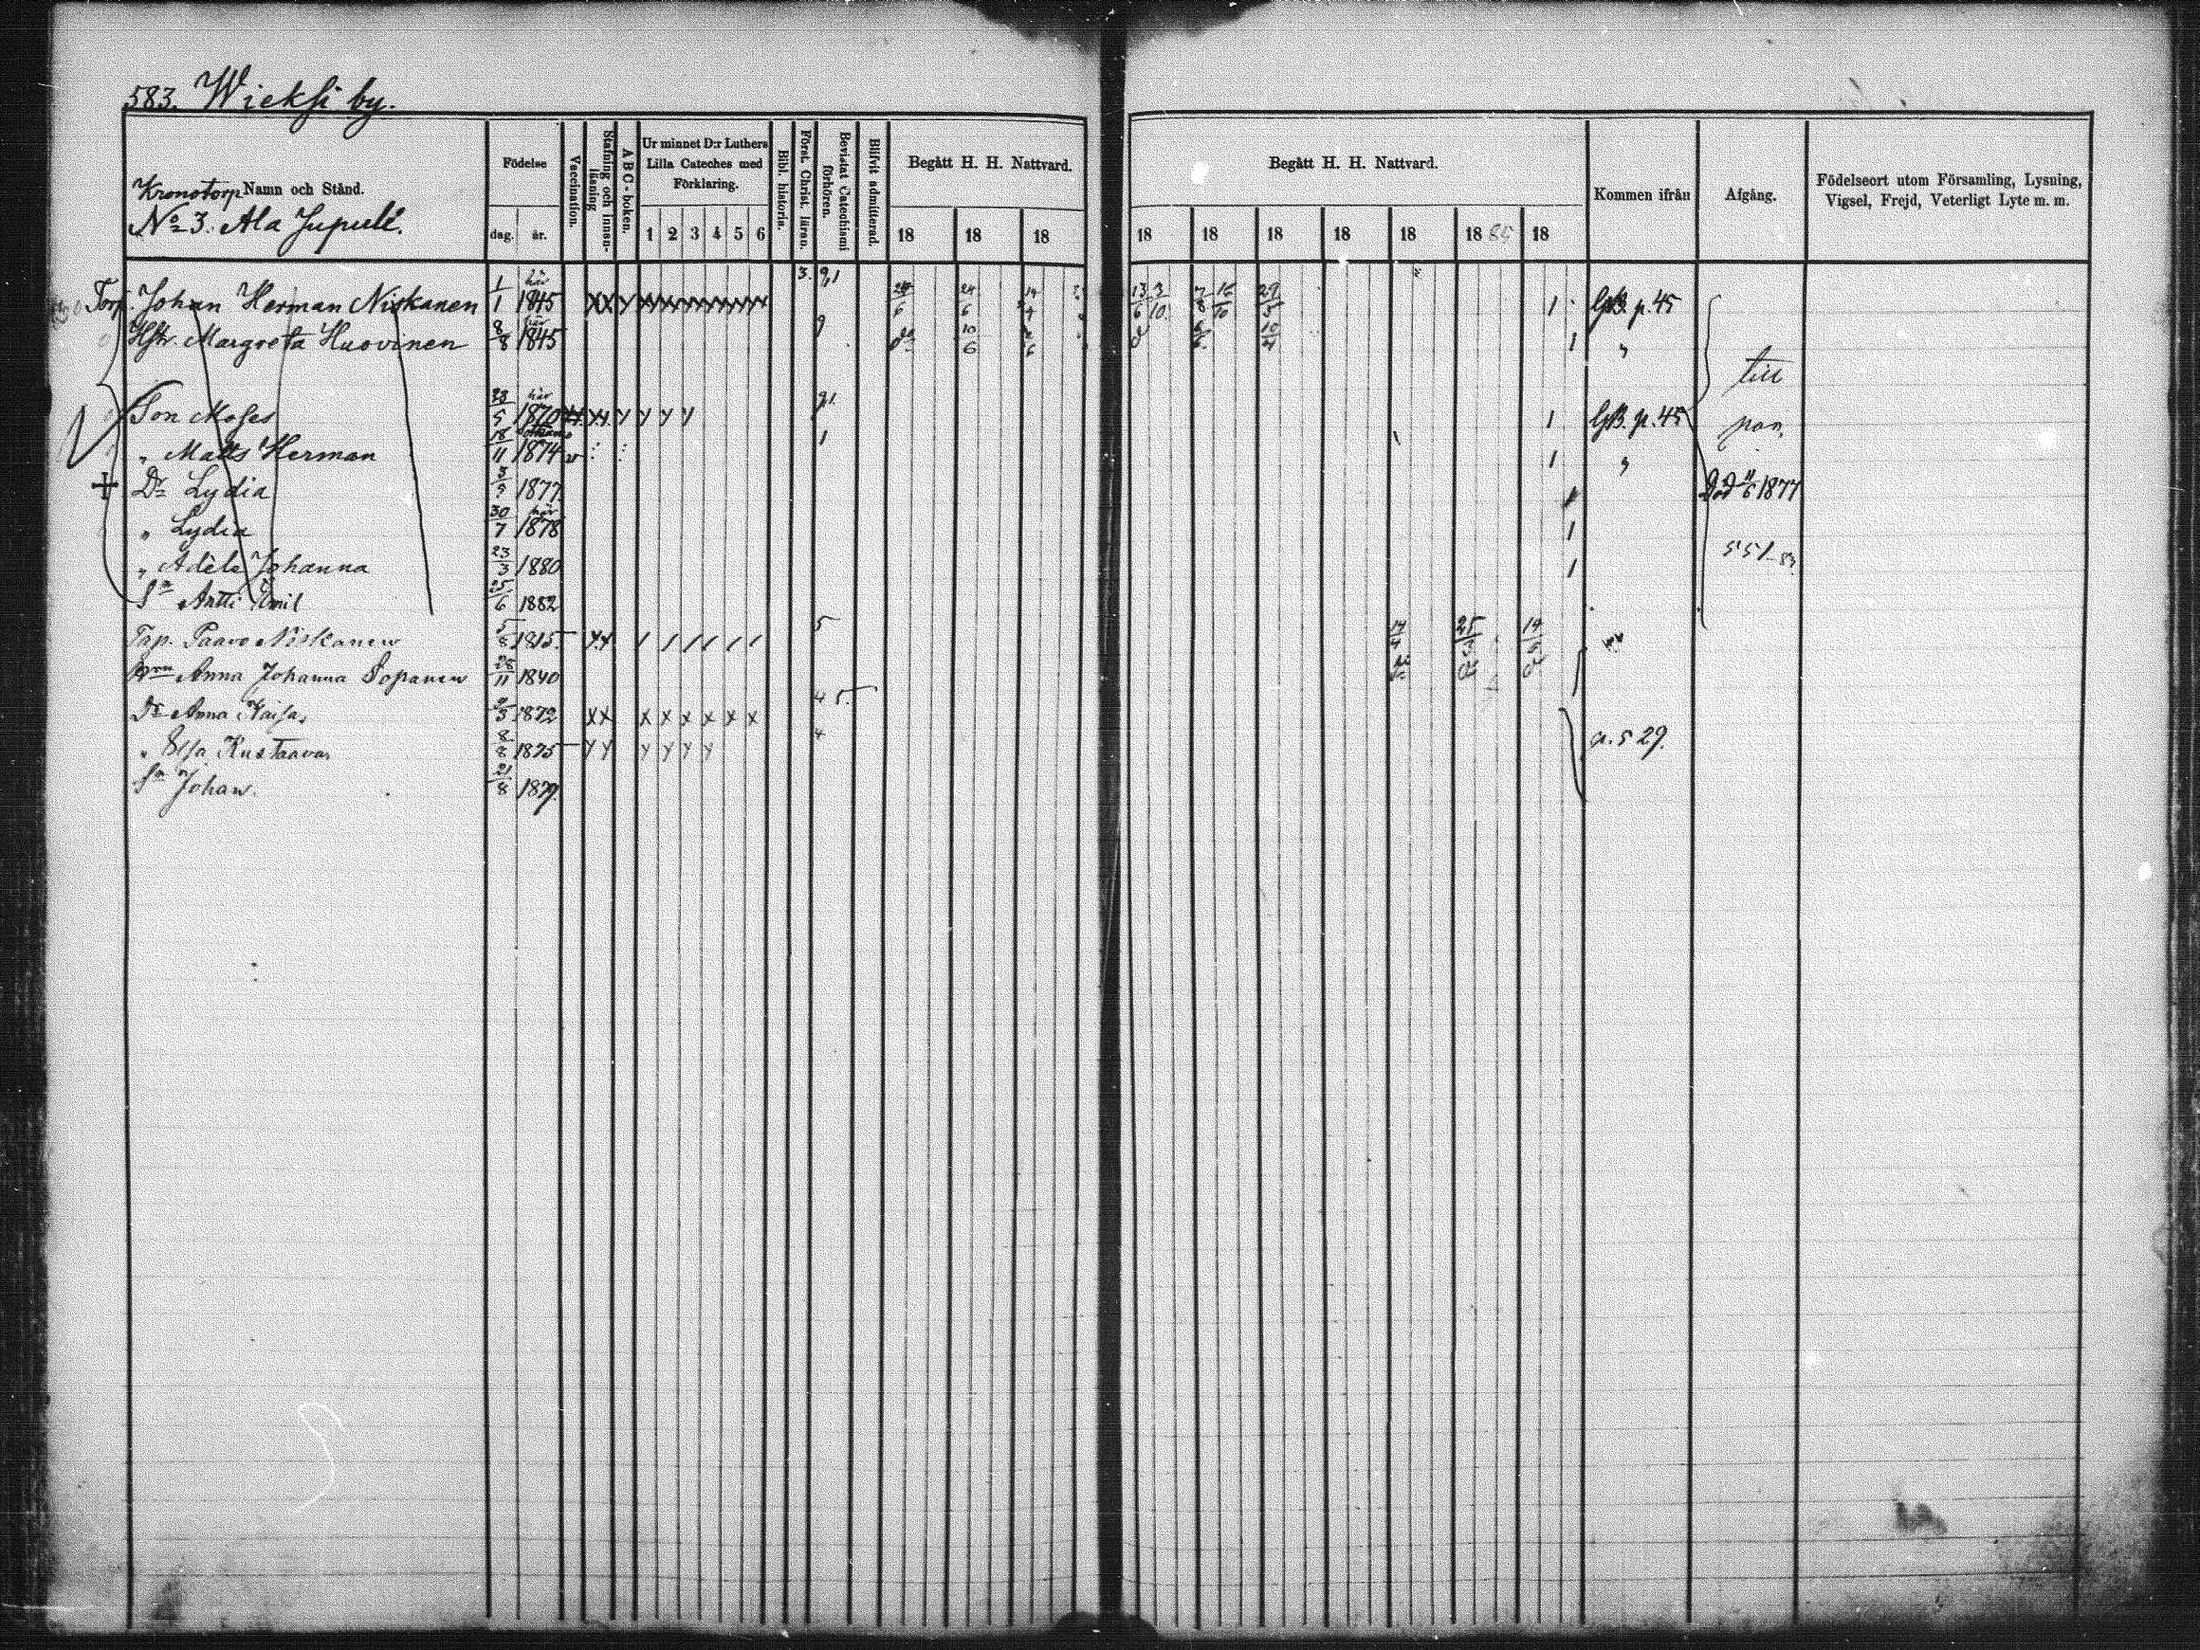 583. Wieksi by.
Kronotorp Namn och Stånd.
No 3. Ala Jupuli.
Födelse
dag. år.
Vaccination.
Stafning och innan-
läsning
A B C-boken.
Ur minnet D:r Luthers
Lilla Cateches med
Förklaring.
1 2 3 4 5 6
Bibl. historia.
Först. Christ. läran.
Bevistat Catechismi
förhören.
Blifvit admitterad.
Begått H. H. Nattvard.
18 18 18
Begått H. H. Nattvard.
18 18 18 18 18 18 85 18
Kommen ifrån
Afgång.
Födelseort utom Församling, Lysning,
Vigsel, Frejd, Veterligt Lyte m. m.
Torp. Johan Herman Niskanen 1/1 här 1845 3. 9,1 24/6 24/6 14/4 13/6 3/10 7/8 16/10 29/5 1 GB. p. 45
Hstr. Margreta Huovinen 8/8 här 1845 9 10/6 10/4 1 "
till
Son Moses 23/5 här 1870 9,1 1 GB. p. 45
pag.
" Matts Herman 18/11 1874 1 1 "
+ Dr Lydia 1877 Död 11/6 1877
" Lydia 30/7 här 1878 1
" Adele Johanna 23/3 1880 1 551-83
Sn Antti Emil 25/6 1882
Trp. Paavo Niskanen 5/8 1815 5 14/4 25/3 14/5
Anna Johanna Sopanen 28/11 1840
Dr Anna Kaisa, 1872 4 5.
" Elsa Kustaava 8/8 1875 4 p. 529.
Sn Johan. 21/8 1879.